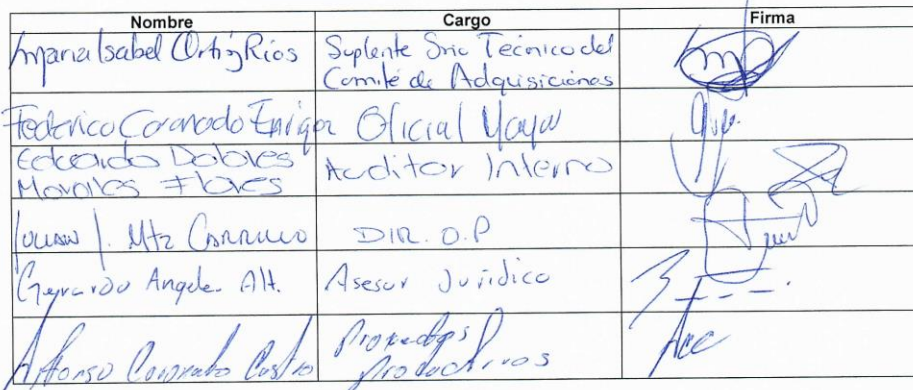 Nombre Cargo Firma
Maria Isabel Ortiz Rios Suplente Srio Tecnico del
Comité de Adquisiciones
Federico Coronado Oficial Mayor
Eduardo Dolores Auditor Interno
Morales Flores
J. Mtz Carrillo DIR. O.P
Gerardo Angele. Alt. Asesor Juridico
Alfonso Coronado Castro
Productivos